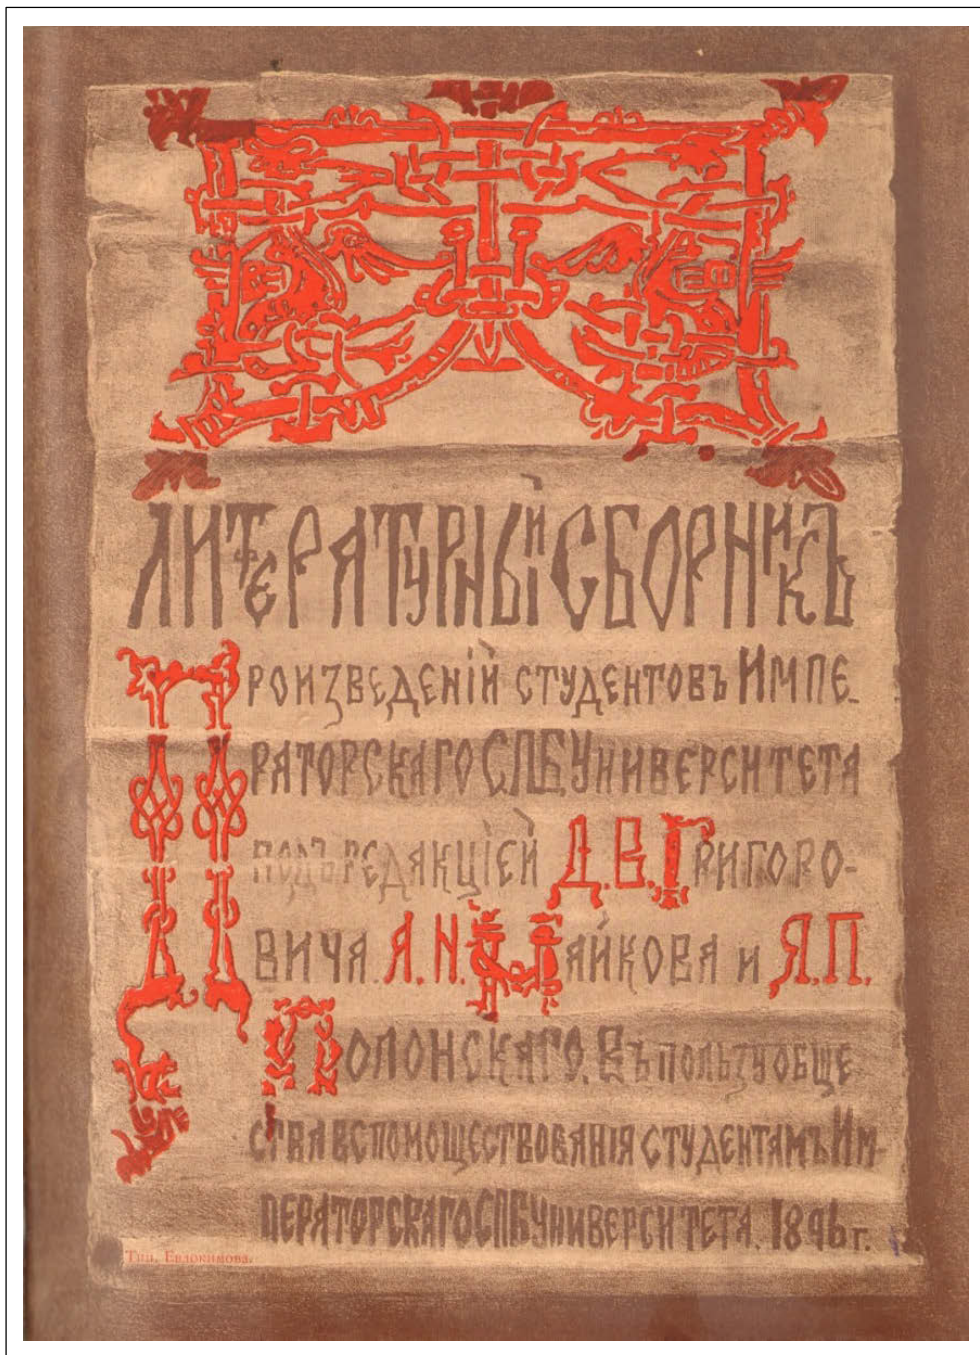 ЛИТЕРАТУРНЫЙ СБОРНИКЪ
ПРОИЗВЕДЕНІЙ СТУДЕНТОВЪ ИМПЕ-
РАТОРСКАГО СПБ УНИВЕРСИТЕТА
ПОДЪ РЕДАКЦІЕЙ Д. В. ГРИГОРО-
ВИЧА. А. N. МАЙКОВА и Я. П.
ПОЛОНСКАГО. ВЪ ПОЛЬЗУ ОБЩЕ
СТВА ВСПОМОЩЕСТВОВАНІЯ СТУДЕНТАМЪ ИМ-
ПЕРАТОРСКАГО СПБ УНИВЕРСИТЕТА. 1896 г.
Тип. Евдокимова.